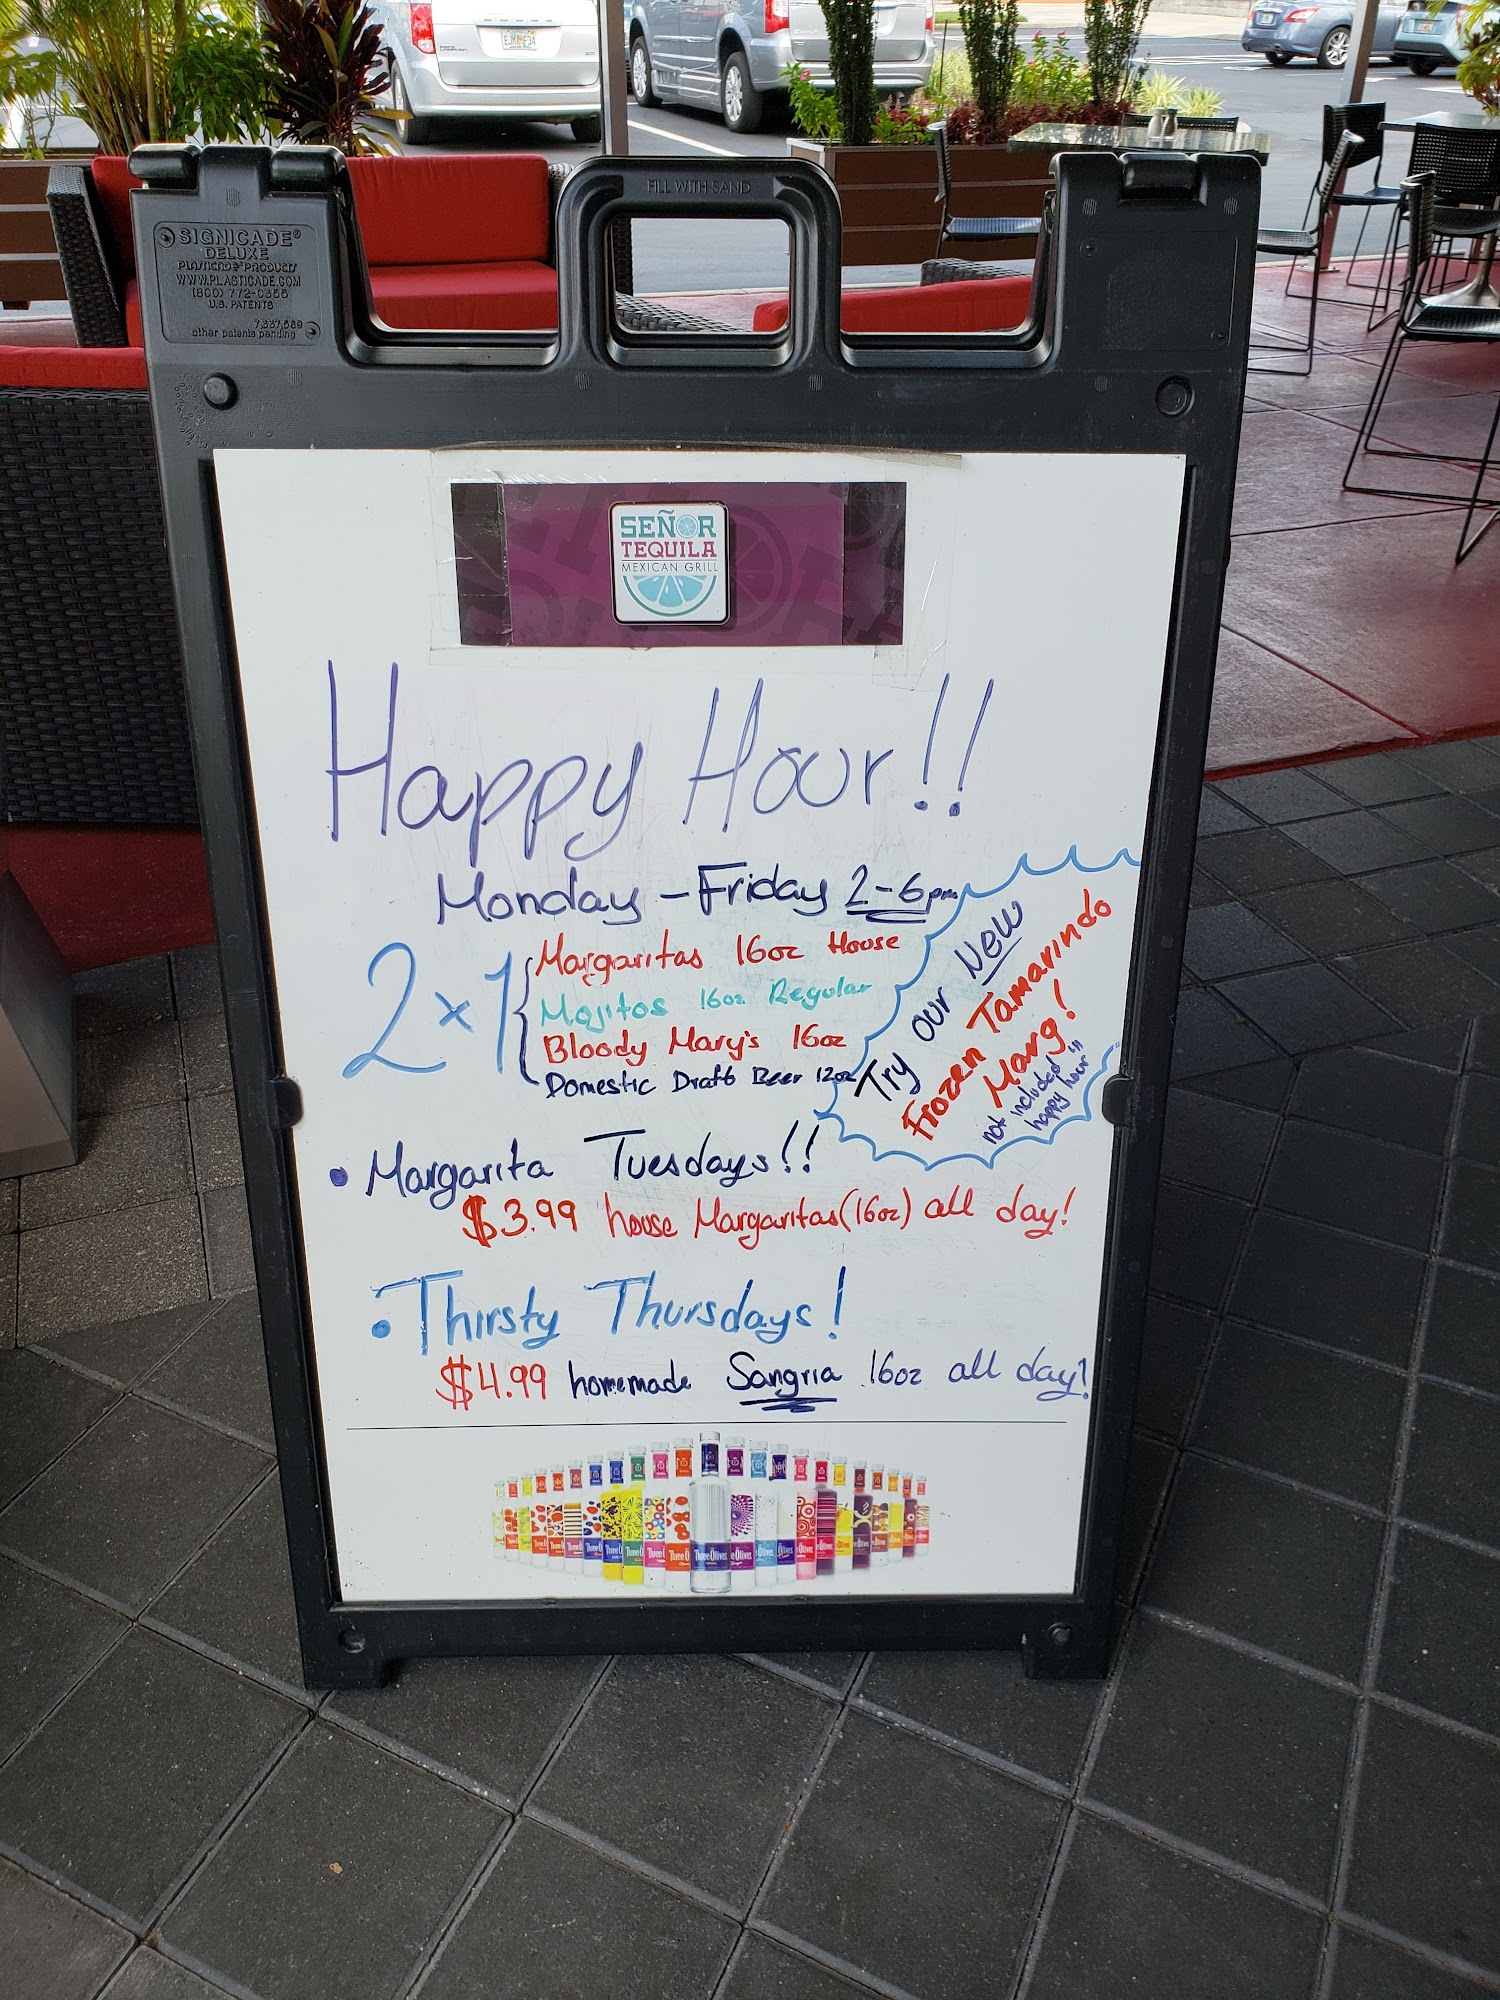 FILL WITH SAND
SIGNICADE®
DELUXE
PLASTICADE® PRODUCTS
WWW.PLASTICADE.COM
(800) 772-0355
U.S. PATENTS
7,337,569
other patents pending
SEÑOR
TEQUILA
MEXICAN GRILL
Happy Hour!!
Monday - Friday 2-6pm
2x1
Margaritas 16oz House
Mojitos 16oz Regular
Bloody Mary's 16oz
Domestic Draft Beer 12oz
Try our New
Frozen Tamarindo
Marg!
not included in
happy hour
• Margarita Tuesdays!!
$3.99 house Margaritas (16oz) all day!
• Thirsty Thursdays!
$4.99 homemade Sangria 16oz all day!
Three Olives